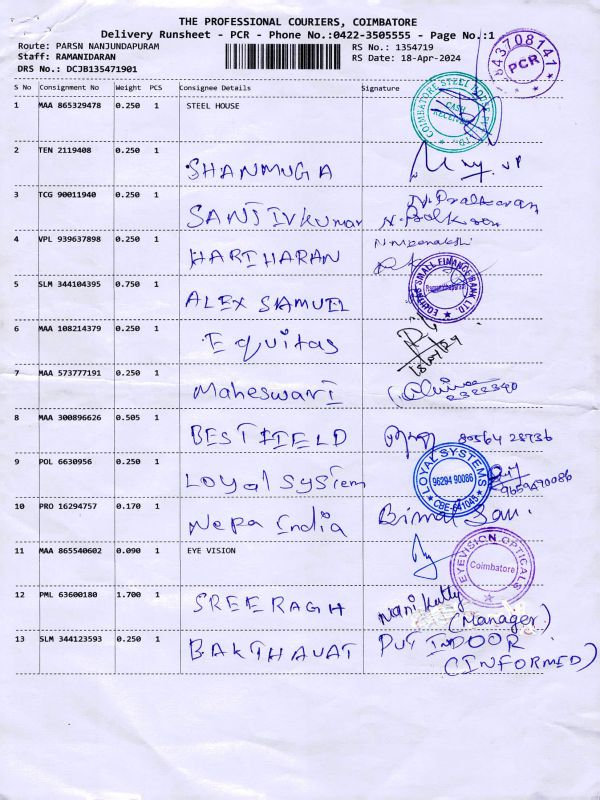 THE PROFESSIONAL COURIERS, COIMBATORE
Delivery Runsheet - PCR - Phone No.:0422-3505555 - Page No.:1
Route: PARSN NANJUNDAPURAM RS No.: 1354719
Staff: RAMANIDARAN RS Date: 18-Apr-2024
DRS No.: DCJB135471901
9843708141
PCR
S No Consignment No Weight PCS Consignee Details Signature
1 MAA 865329478 0.250 1 STEEL HOUSE
CASH RECEIVED
2 TEN 2119408 0.250 1
SHANMUGA
3 TCG 90011940 0.250 1
SANJIVkumar
4 VPL 939637898 0.250 1
HARIHARAN
5 SLM 344104395 0.750 1
ALEX SAMUEL
EQUITAS SMALL FINANCE BANK LTD.
Ramanathapuram
6 MAA 108214379 0.250 1
Equitas
7 MAA 573777191 0.250 1
Maheswari
8 MAA 300896626 0.505 1
BESTFIELD 80564 28736
9 POL 6630956 0.250 1
Loyal System
LOYAL SYSTEMS
96294 90086
CBE-641045
9659490086
10 PRO 16294757 0.170 1
Nepa India
11 MAA 865540602 0.090 1 EYE VISION
EYEVISION OPTICALS
Coimbatore
12 PML 63600180 1.700 1
SREERAGH Mani Kutty
(Manager)
13 SLM 344123593 0.250 1
BAKTHAVAT PUT INDOOR
(INFORMED)